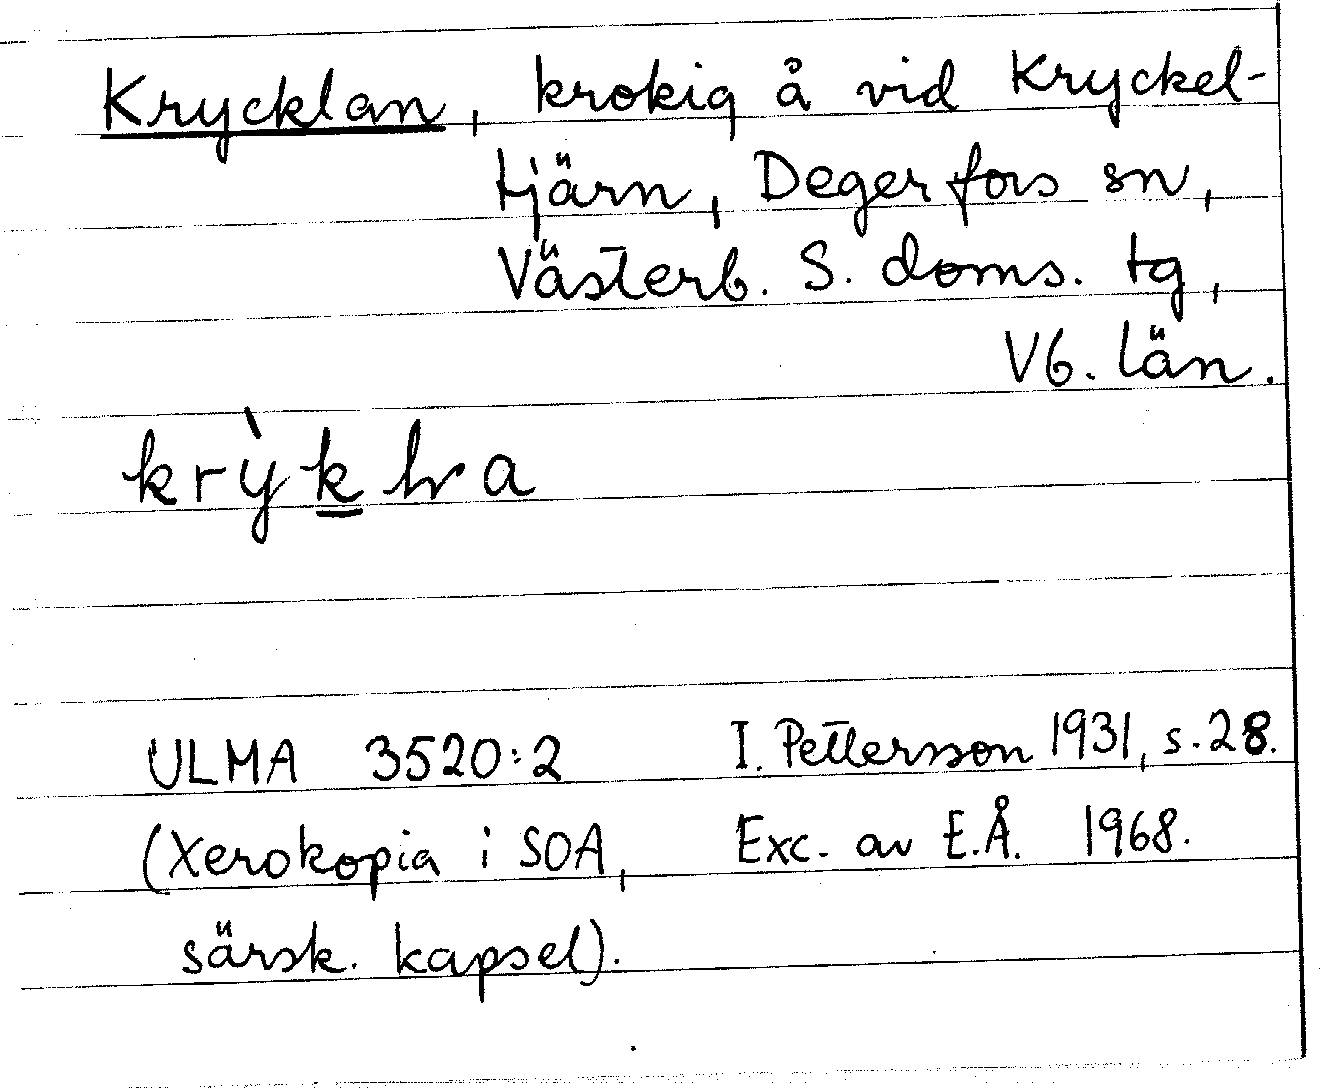 Krycklan, krokig å vid Kryckel-
tjärn, Degerfors sn,
Västerb. S. doms. tg,
Vb. län.
krỳk̲
ULMA 3520:2 I. Pettersson 1931, s. 28.
(Xerokopia i SOA, Exc. av E.Å. 1968.
särsk. kapsel).